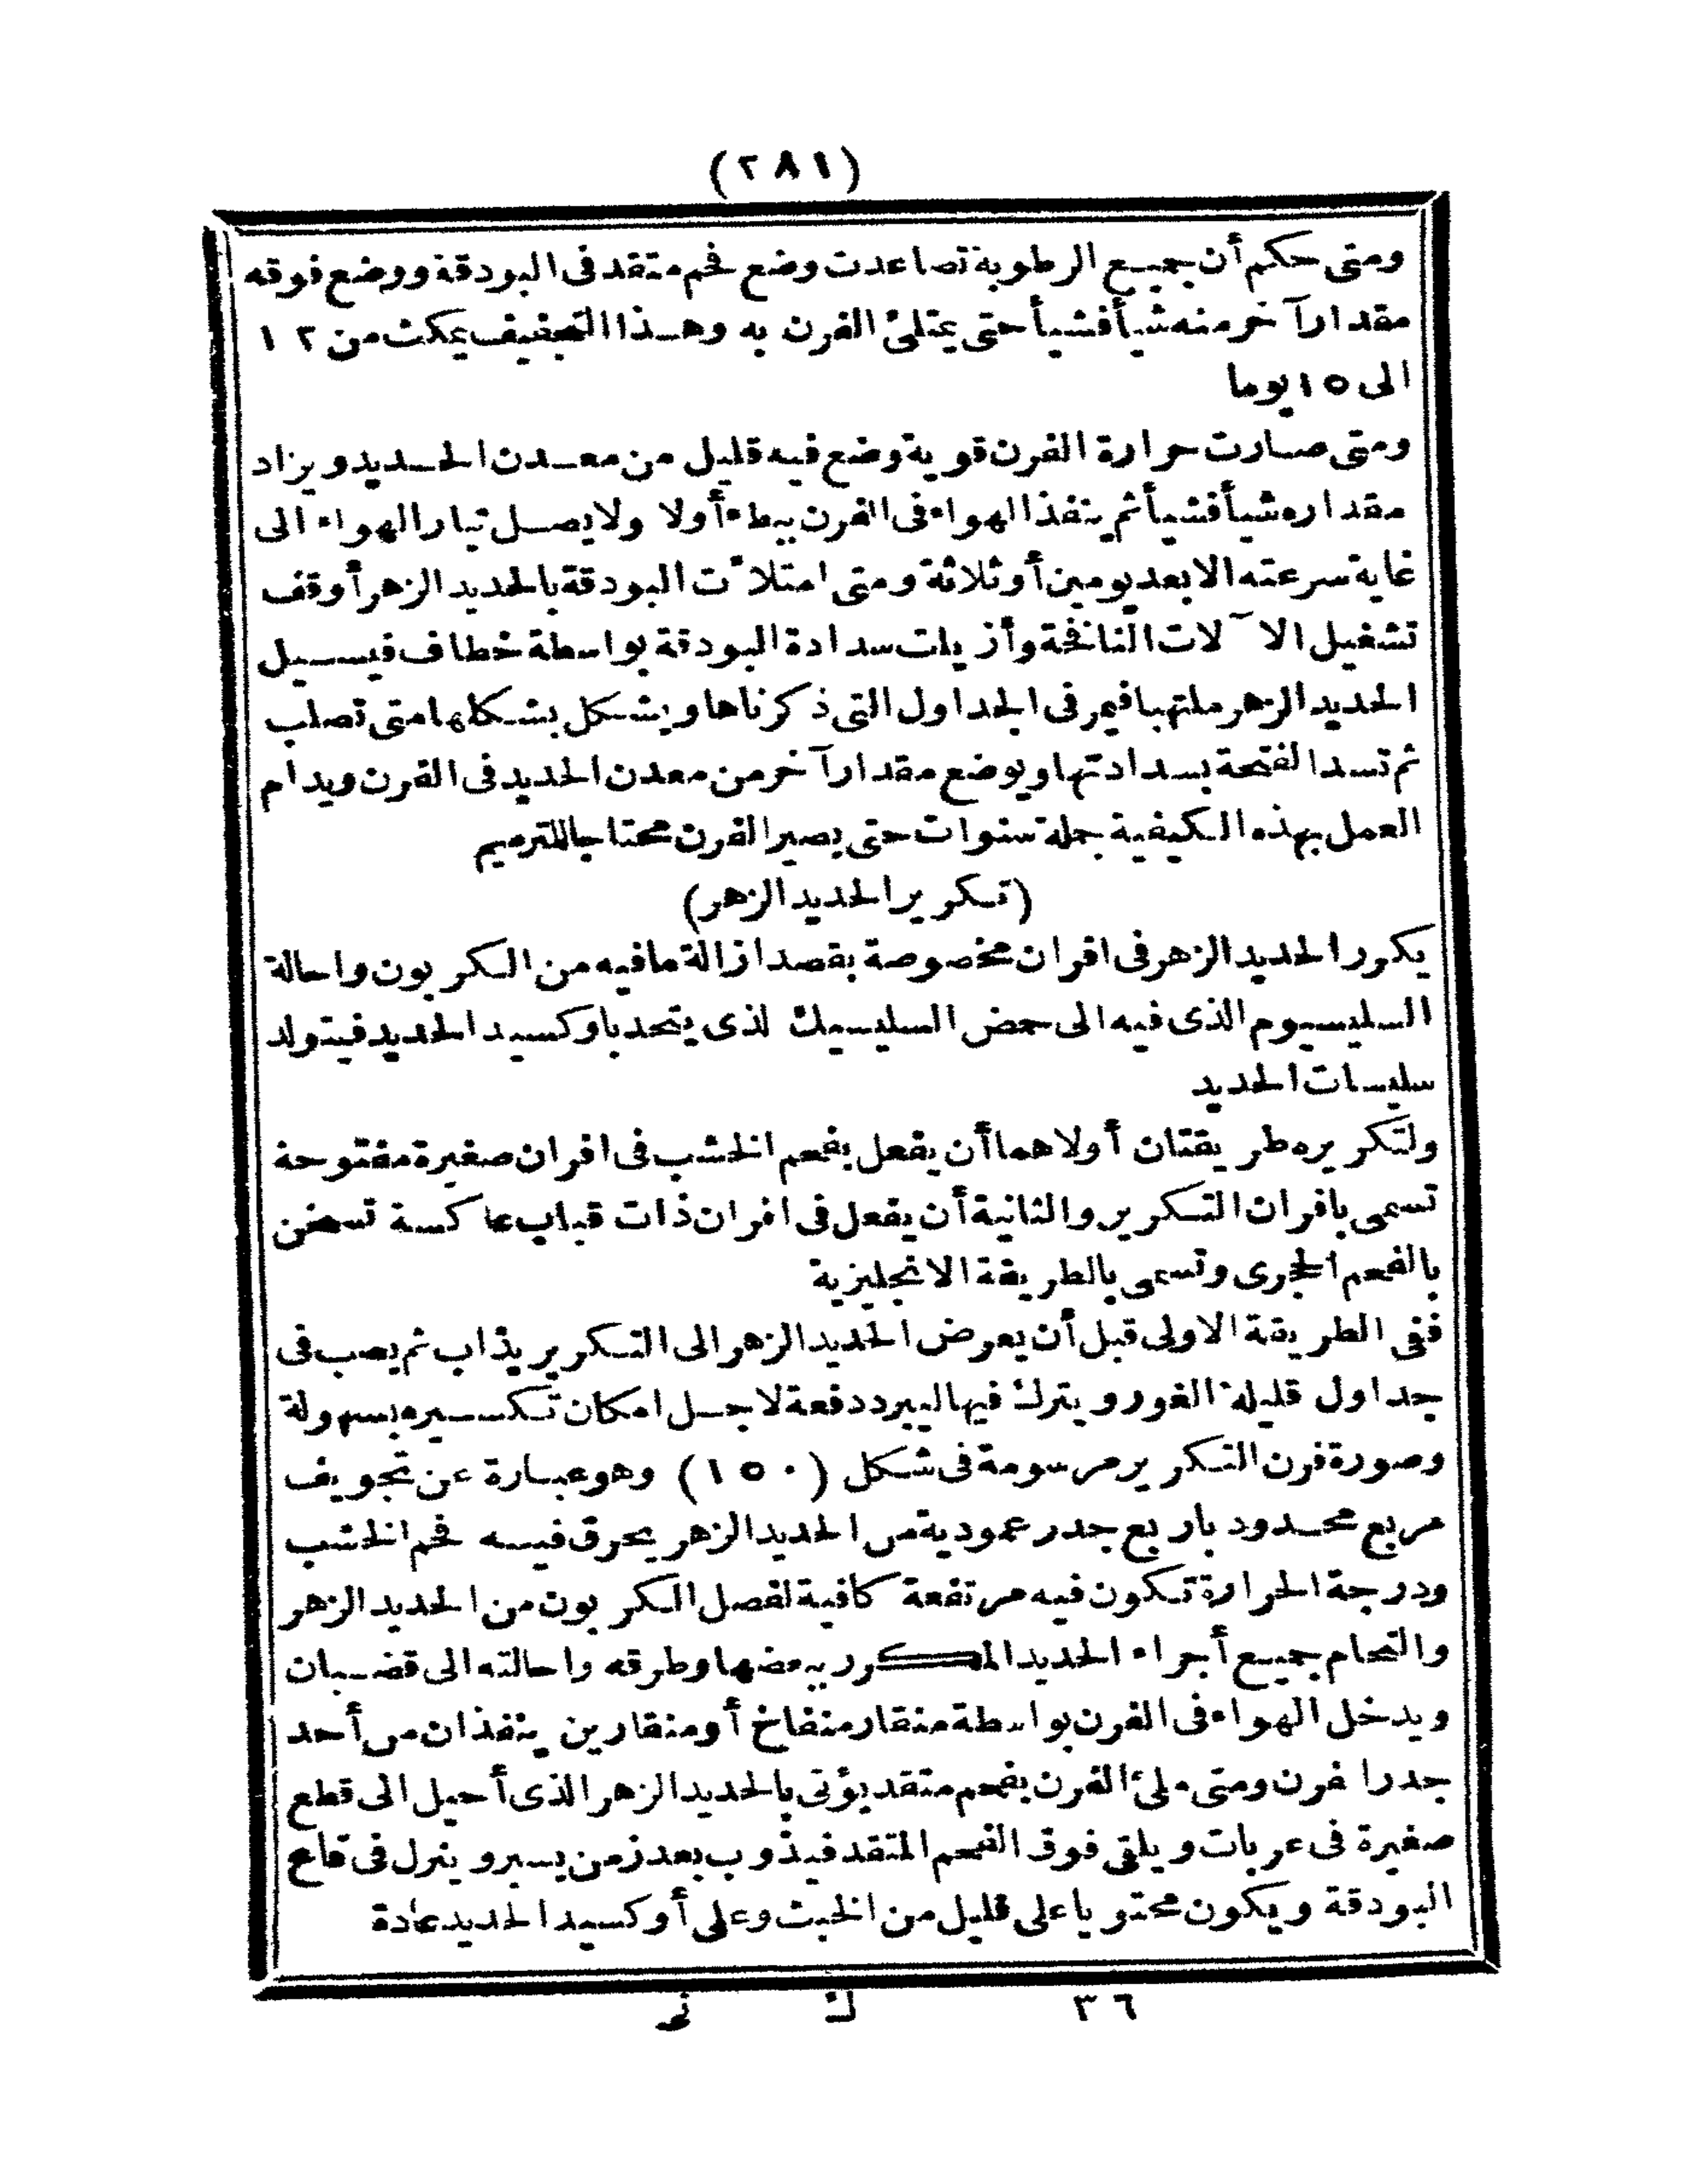 (٢٨١)
ومتى حكم أن جميع الرطوبة تصاعدت وضع فحم متقد فى البودقة ووضع فوقه
مقدارا آخر منه شيأ فشيأ حتى يمتلئ الفرن به وهذا التجفيف يمكث من ١٢
الى ١٥ يوما
ومتى صارت حرارة الفرن قوية وضع فيه قليل من معدن الحديد ويزاد
مقداره شيأ فشيأ ثم ينفذ الهواء فى الفرن ببطء أولا ولا يصل تيار الهواء الى
غاية سرعته الا بعد يومين أو ثلاثة ومتى امتلأت البودقة بالحديد الزهر أوقف
تشغيل الآلات النافخة وأزيلت سدادة البودقة بواسطة خطاف فيسيل
الحديد الزهر ملتهبا فيمر فى الجداول التى ذكرناها ويشكل بشكلها متى تصلب
ثم تسد الفتحة بسدادتها ويوضع مقدارا آخر من معدن الحديد فى الفرن ويدام
العمل بهذه الكيفية جملة سنوات حتى يصير الفرن محتاجا للترميم
(تكرير الحديد الزهر)
يكرر الحديد الزهر فى افران مخصوصة بقصد ازالة ما فيه من الكربون واحالة
السليسيوم الذى فيه الى حمض السليسيك لذى يتحد باوكسيد الحديد فيتولد
سليسات الحديد
ولتكريره طريقتان أولاهما أن يفعل بفحم الخشب فى افران صغيرة مفتوحة
تسمى بافران التكرير والثانية أن يفعل فى افران ذات قباب عاكسة تسخن
بالفحم الحجرى وتسمى بالطريقة الانجليزية
ففى الطريقة الاولى قبل أن يعرض الحديد الزهر الى التكرير يذاب ثم يصب فى
جداول قليلة الغور ويترك فيها ليبرد دفعة لاجل امكان تكسيره بسهولة
وصورة فرن التكرير مرسومة فى شكل (١٥٠) وهو عبارة عن تجويف
مربع محدود باربع جدر عمودية من الحديد الزهر يحرق فيه فحم الخشب
ودرجة الحرارة تكون فيه مرتفعة كافية لفصل الكربون من الحديد الزهر
والتحام جميع أجزاء الحديد المكرر ببعضها وطرقه واحالته الى قضبان
ويدخل الهواء فى الفرن بواسطة منقار منفاخ أو منقارين ينفذان من أحد
جدر ا فرن ومتى ملئ الفرن بفحم متقد يؤتى بالحديد الزهر الذى أحيل الى قطع
صغيرة فى عربات ويلقى فوق الفحم المتقد فيذوب بعد زمن يسير وينزل فى قاع
البودقة ويكون محتويا على قليل من الخبث وعلى أوكسيد الحديد عادة
٣٦ ك نى